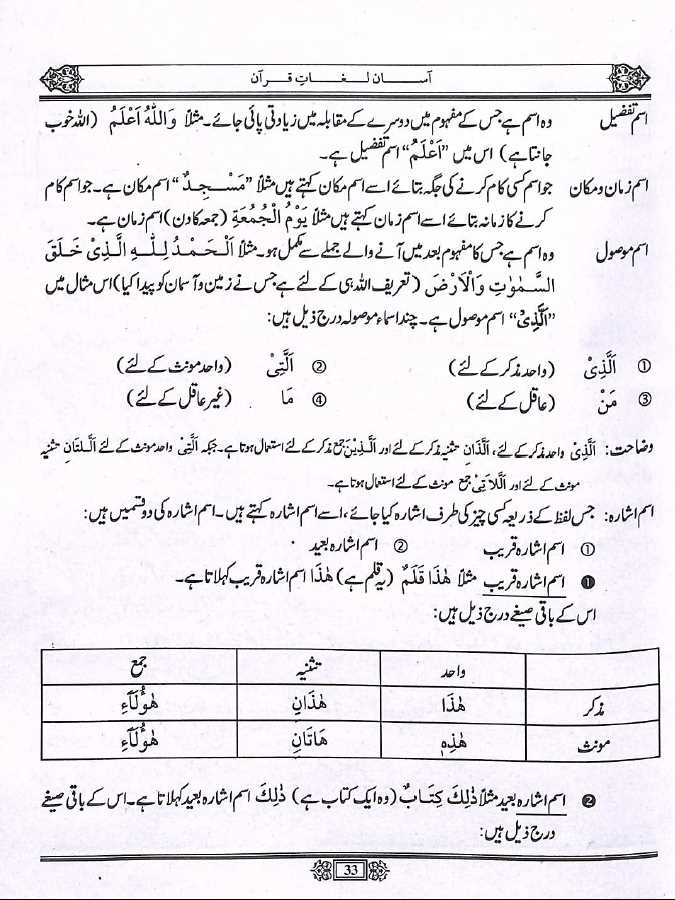 آسان لغاتِ قرآن
اسم تفضیل وہ اسم ہے جس کے مفہوم میں دوسرے کے مقابلہ میں زیادتی پائی جائے۔ مثلاً وَاللّٰهُ اَعْلَمُ (اللہ خوب
جانتا ہے) اس میں ”اَعْلَمُ“ اسم تفضیل ہے۔
اسم زمان و مکان جو اسم کسی کام کرنے کی جگہ بتائے اسے اسم مکان کہتے ہیں مثلاً ”مَسْجِدٌ“ اسم مکان ہے۔ جو اسم کام
کرنے کا زمانہ بتائے اسے اسم زمان کہتے ہیں مثلاً يَوْمُ الْجُمُعَةِ (جمعہ کا دن) اسم زمان ہے۔
اسم موصول وہ اسم ہے جس کا مفہوم بعد میں آنے والے جملے سے مکمل ہو۔ مثلاً اَلْحَمْدُ لِلّٰهِ الَّذِیْ خَلَقَ
السَّمٰوٰتِ وَالْاَرْضَ (تعریف اللہ ہی کے لئے ہے جس نے زمین و آسمان کو پیدا کیا) اس مثال میں
”اَلَّذِیْ“ اسم موصول ہے۔ چند اسماء موصولہ درج ذیل ہیں:
① اَلَّذِیْ (واحد مذکر کے لئے) ② اَلَّتِیْ (واحد مونث کے لئے)
③ مَنْ (عاقل کے لئے) ④ مَا (غیر عاقل کے لئے)
وضاحت: اَلَّذِیْ واحد مذکر کے لئے، اَلَّذَانِ تثنیہ مذکر کے لئے اور اَلَّذِیْنَ جمع مذکر کے لئے استعمال ہوتا ہے۔ جبکہ اَلَّتِیْ واحد مونث کے لئے اَلَّلتَانِ تثنیہ
مونث کے لئے اور اَلَّلاَتِیْ جمع مونث کے لئے استعمال ہوتا ہے۔
اسم اشارہ: جس لفظ کے ذریعہ کسی چیز کی طرف اشارہ کیا جائے، اسے اسم اشارہ کہتے ہیں۔ اسم اشارہ کی دو قسمیں ہیں:
① اسم اشارہ قریب ② اسم اشارہ بعید
❶ اسم اشارہ قریب مثلاً هٰذَا قَلَمٌ (یہ قلم ہے) هٰذَا اسم اشارہ قریب کہلاتا ہے۔
اس کے باقی صیغے درج ذیل ہیں:
واحد تثنیہ جمع
مذکر هٰذَا هٰذَانِ هٰٓؤُلَآءِ
مونث هٰذِهٖ هَاتَانِ هٰٓؤُلَآءِ
❷ اسم اشارہ بعید مثلاً ذٰلِكَ كِتَابٌ (وہ ایک کتاب ہے) ذٰلِكَ اسم اشارہ بعید کہلاتا ہے۔ اس کے باقی صیغے
درج ذیل ہیں:
33